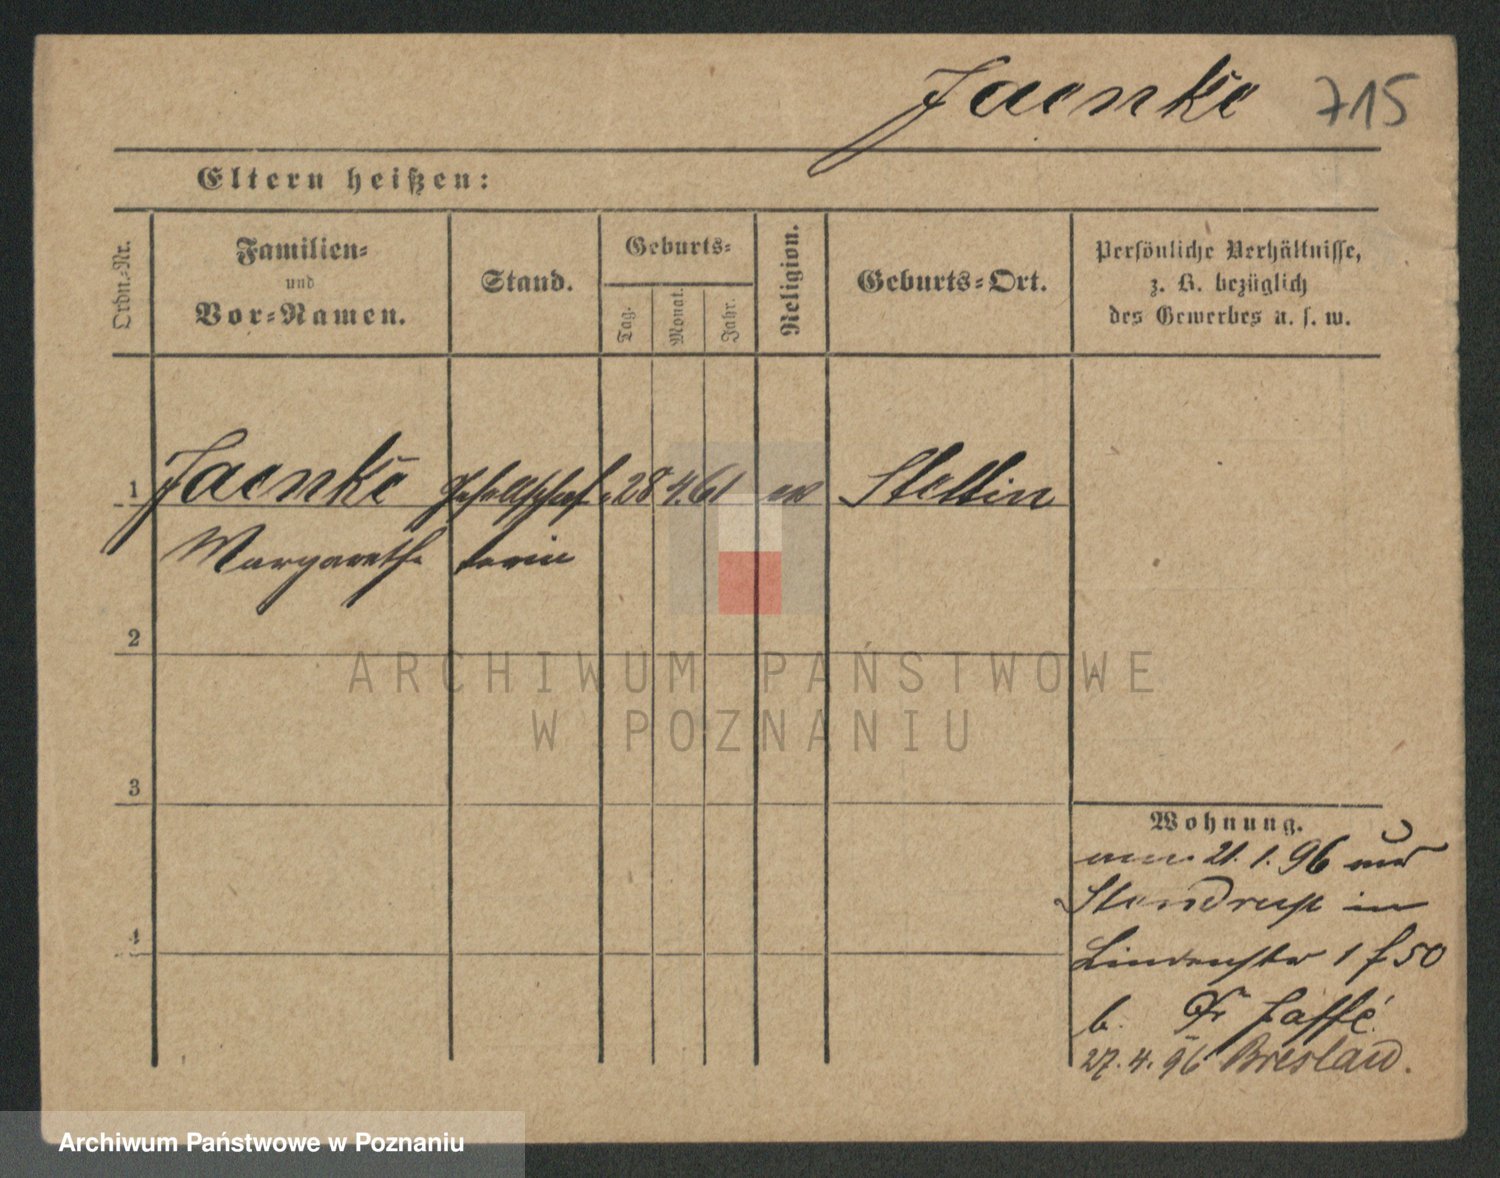 Jaenke 715
Eltern heißen:
Ordn.=Nr.
Familien=
und
Vor=Namen.
Stand.
Geburts=
Tag.
Monat.
Jahr.
Religion.
Geburts=Ort.
Persönliche Verhältnisse,
z. B. bezüglich
des Gewerbes u. s. w.
1 Jaenke Gesellschaf- 28 4. 61 ev Stettin
Margarethe terin
2
3
4
Wohnung.
21. 1. 96 aus
in
Lindenstr 1 f 50
b. Fr Jaffé
27. 4. 96 Breslau.
ARCHIWUM PAŃSTWOWE
W POZNANIU
Archiwum Państwowe w Poznaniu